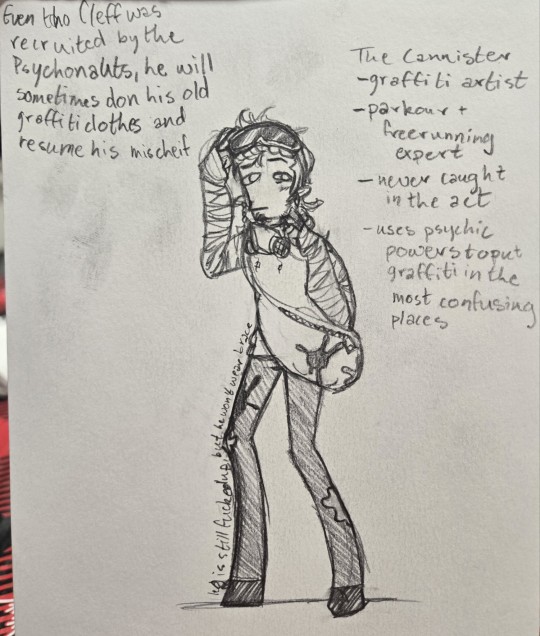 Even tho Cleff was
recruited by the
Psychonauts, he will
sometimes don his old
graffiti clothes and
resume his mischeif
The Cannister
-graffiti artist
-parkour +
freerunning
expert
-never caught
in the act
-uses psychic
powers to put
graffiti in the
most confusing
places
leg is still fucked up but he won't wear brace